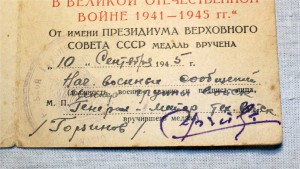 В ВЕЛИКОЙ ОТЕЧЕСТВЕННОЙ
ВОЙНЕ 1941—1945 гг."
От имени ПРЕЗИДИУМА ВЕРХОВНОГО
СОВЕТА СССР МЕДАЛЬ ВРУЧЕНА
"10" Сентября 1945 г.
Нач. военных сообщений
(должность, войск
М. П. Генерал-майор тех. войск
вручившего медаль)